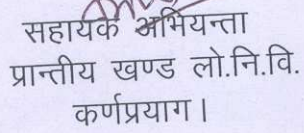 सहायक अभियन्ता
प्रान्तीय खण्ड लो.नि.वि.
कर्णप्रयाग।